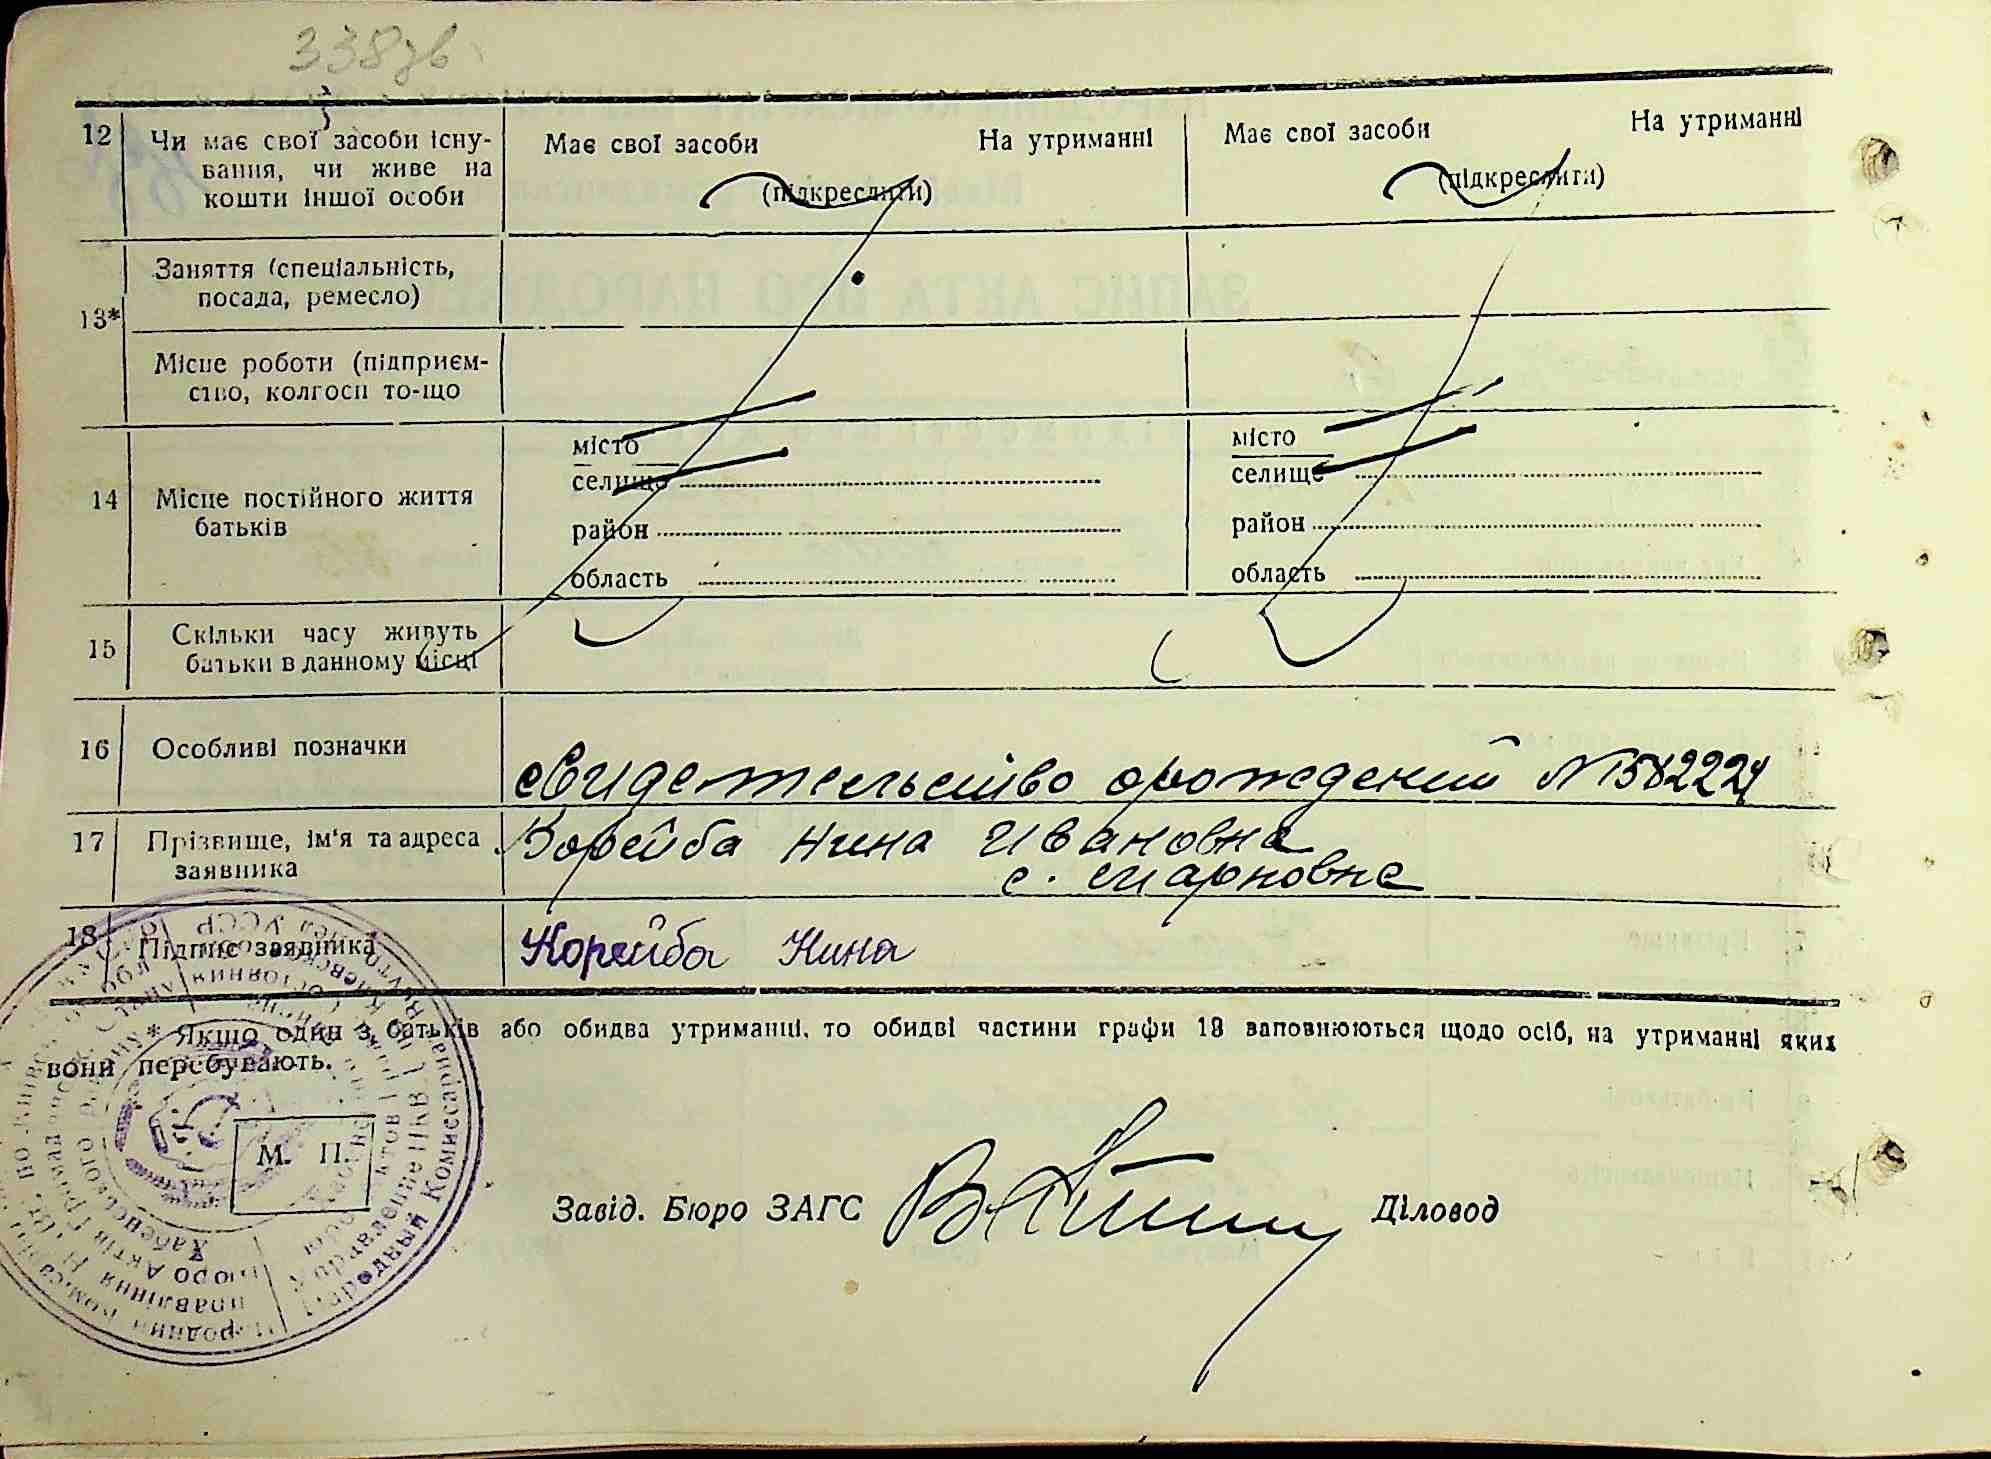 338зв
12 Чи має свої засоби існу-
вання, чи живе на
кошти іншої особи
Має свої засоби На утриманні
(підкреслити)
Має свої засоби На утриманні
(підкреслити)
13*
Заняття (спеціальність,
посада, ремесло)
Місце роботи (підприєм-
ство, колгосп то-що
14 Місце постійного життя
батьків
місто
селище
район
область
місто
селище
район
область
15 Скільки часу живуть
батьки в данному місці
16 Особливі позначки
свидетельство о рождений №
17 Прізвище, ім'я та адреса
заявника
Корейба Нина Ивановна
с.
18 Підпис заявника
Корейба Нина
* Якщо один з батьків або обидва утриманці, то обидві частини графи 13 заповнюються щодо осіб, на утриманні яких
вони перебувають.
М. П.
Завід. Бюро ЗАГС
Діловод